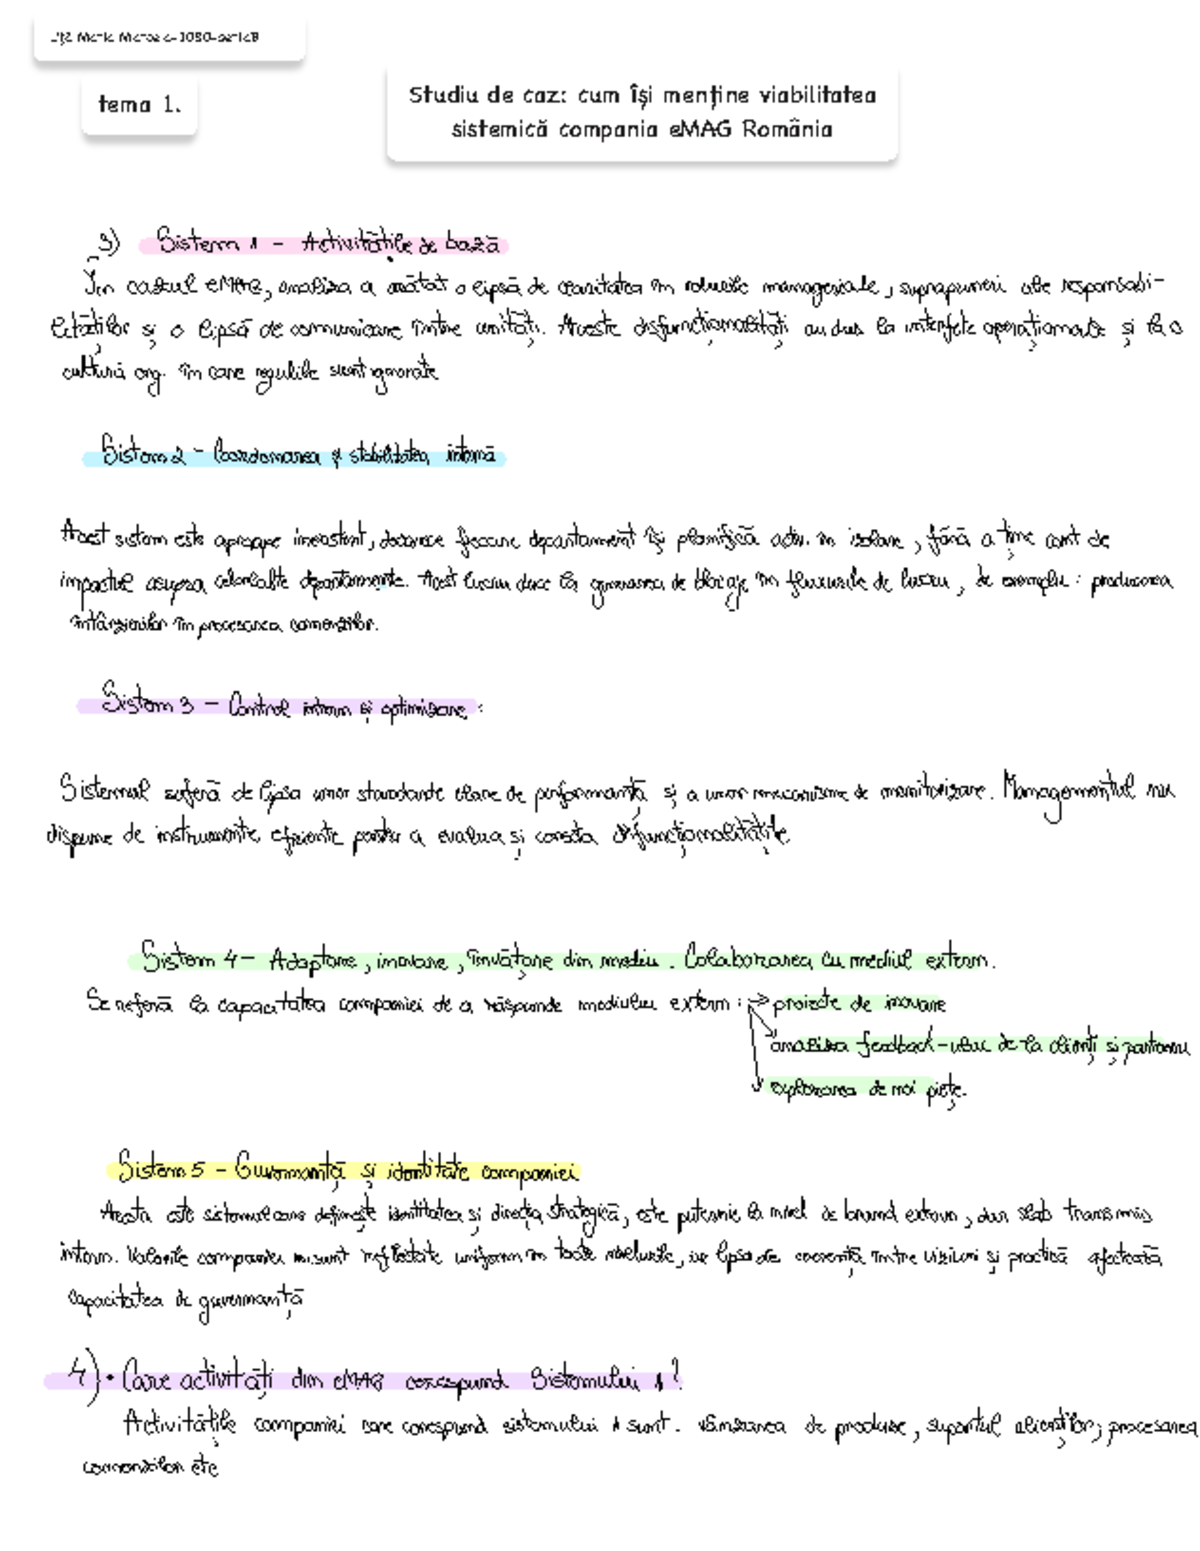 Maria 1080-seriaB
tema 1.
Studiu de caz: cum își menține viabilitatea
sistemică compania eMAG România
3) Sistem 1 - Activitățile de bază
În cazul eMAG, analiza a arătat o lipsă de claritatea în rolurile manageriale, suprapuneri ale responsabi-
lităților și o lipsă de comunicare între unități. Aceste disfuncționalități au dus la interfețe operaționale și la o
cultură org. în care regulile sunt ignorate
Sistem 2 - Coordonarea și stabilitatea internă
Acest sistem este aproape inexistent, deoarece fiecare departament își planifică activ. în izolare, fără a ține cont de
impactul asupra celorlalte departamente. Acest lucru duce la generarea de blocaje în fluxurile de lucru, de exemplu: producerea
întârzierilor în procesarea comenzilor.
Sistem 3 - Control intern și optimizare:
Sistemul suferă de lipsa unor standarde clare de performanță și a unor mecanisme de monitorizare. Managementul nu
dispune de instrumente eficiente pentru a evalua și corecta disfuncționalitățile
Sistem 4 - Adaptare, inovare, învățare din mediu. Colaborarea cu mediul extern.
Se referă la capacitatea companiei de a răspunde mediului extern: → proiecte de inovare
analiza feedback-ului de la clienți și parteneri
explorarea de noi piețe.
Sistem 5 - Guvernanță și identitate companiei
Acesta este sistemul care definește identitatea și direcția strategică, este puternic la nivel de brand extern, dar slab transmis
intern. Valorile companiei nu sunt reflectate uniform în toate nivelurile, iar lipsa de coerență între viziuni și practică afectează
capacitatea de guvernanță
4) • Care activități din eMAG corespund Sistemului 1?
Activitățile companiei care corespund sistemului 1 sunt. vânzarea de produse, suportul clienților, procesarea
comenzilor etc